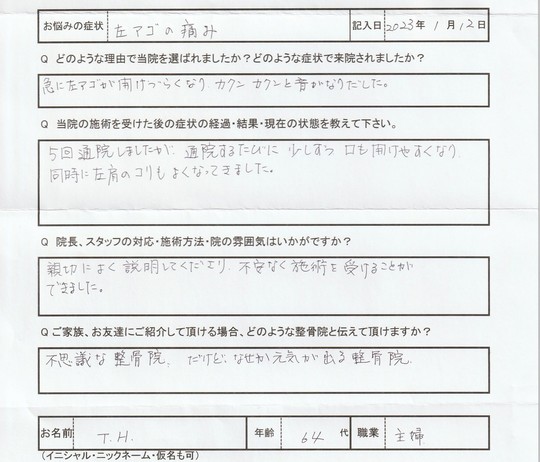 お悩みの症状 左アゴの痛み 記入日 2023年 1月 12日
Q どのような理由で当院を選ばれましたか？どのような症状で来院されましたか？
急に左アゴが開けづらくなり、カクンカクンと音がなりだした。
Q 当院の施術を受けた後の症状の経過・結果・現在の状態を教えて下さい。
5回通院しましたが、通院するたびに 少しずつ 口も開けやすくなり
同時に左肩のコリも よくなってきました。
Q 院長、スタッフの対応・施術方法・院の雰囲気はいかがですか？
親切によく説明してくださり、不安なく施術を受けることが
できました。
Q ご家族、お友達にご紹介して頂ける場合、どのような整骨院と伝えて頂けますか？
不思議な整骨院、だけど、なぜか元気が出る整骨院。
お名前 T.H. 年齢 64 代 職業 主婦
(イニシャル・ニックネーム・仮名も可)